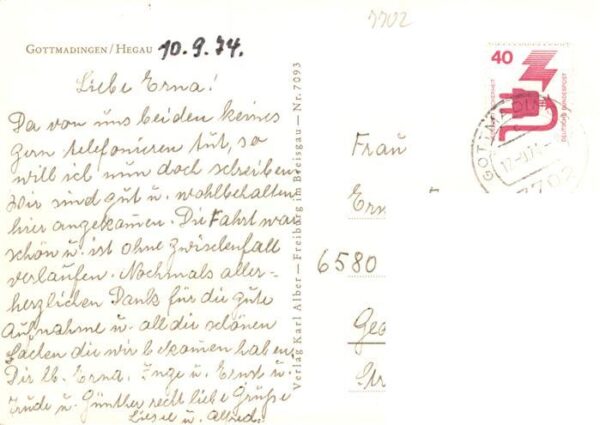 7702
GOTTMADINGEN / HEGAU 10.9.74.
Liebe Erna!
Da von uns beiden keines
gern telefonieren tut, so
will ich nun doch schreiben
Wir sind gut u. wohlbehalten
hier angekommen. Die Fahrt war
schön u. ist ohne Zwischenfall
verlaufen. Nochmals aller-
herzlichen Dank für die gute
Aufnahme u. all die schönen
Sachen die wir bekommen haben.
Dir lb. Erna, Inge u. Ernst u.
Trude u. Günther recht liebe Grüße
Liesel u. Alfred.
Verlag Karl Alber — Freiburg im Breisgau — Nr. 7093
40
DEUTSCHE BUNDESPOST
7702
Frau
Ern
6580
Geo
Str